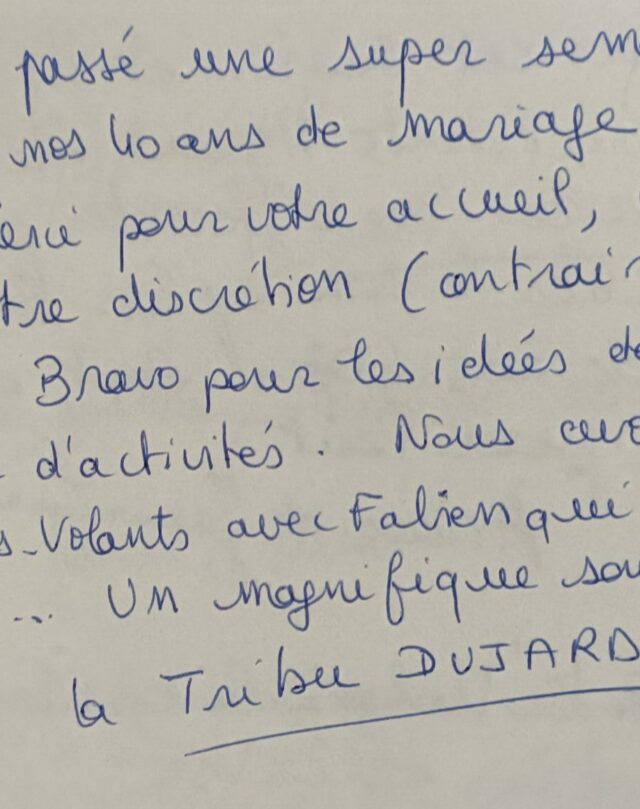 passé une super sem
nos 40 ans de mariage
erci pour votre accueil,
tre discrétion (contrair
Bravo pour les idées de
d'activités. Nous avo
s-Volants avec Fabien qui
... Un magnifique sou
la Tribu DUJARD